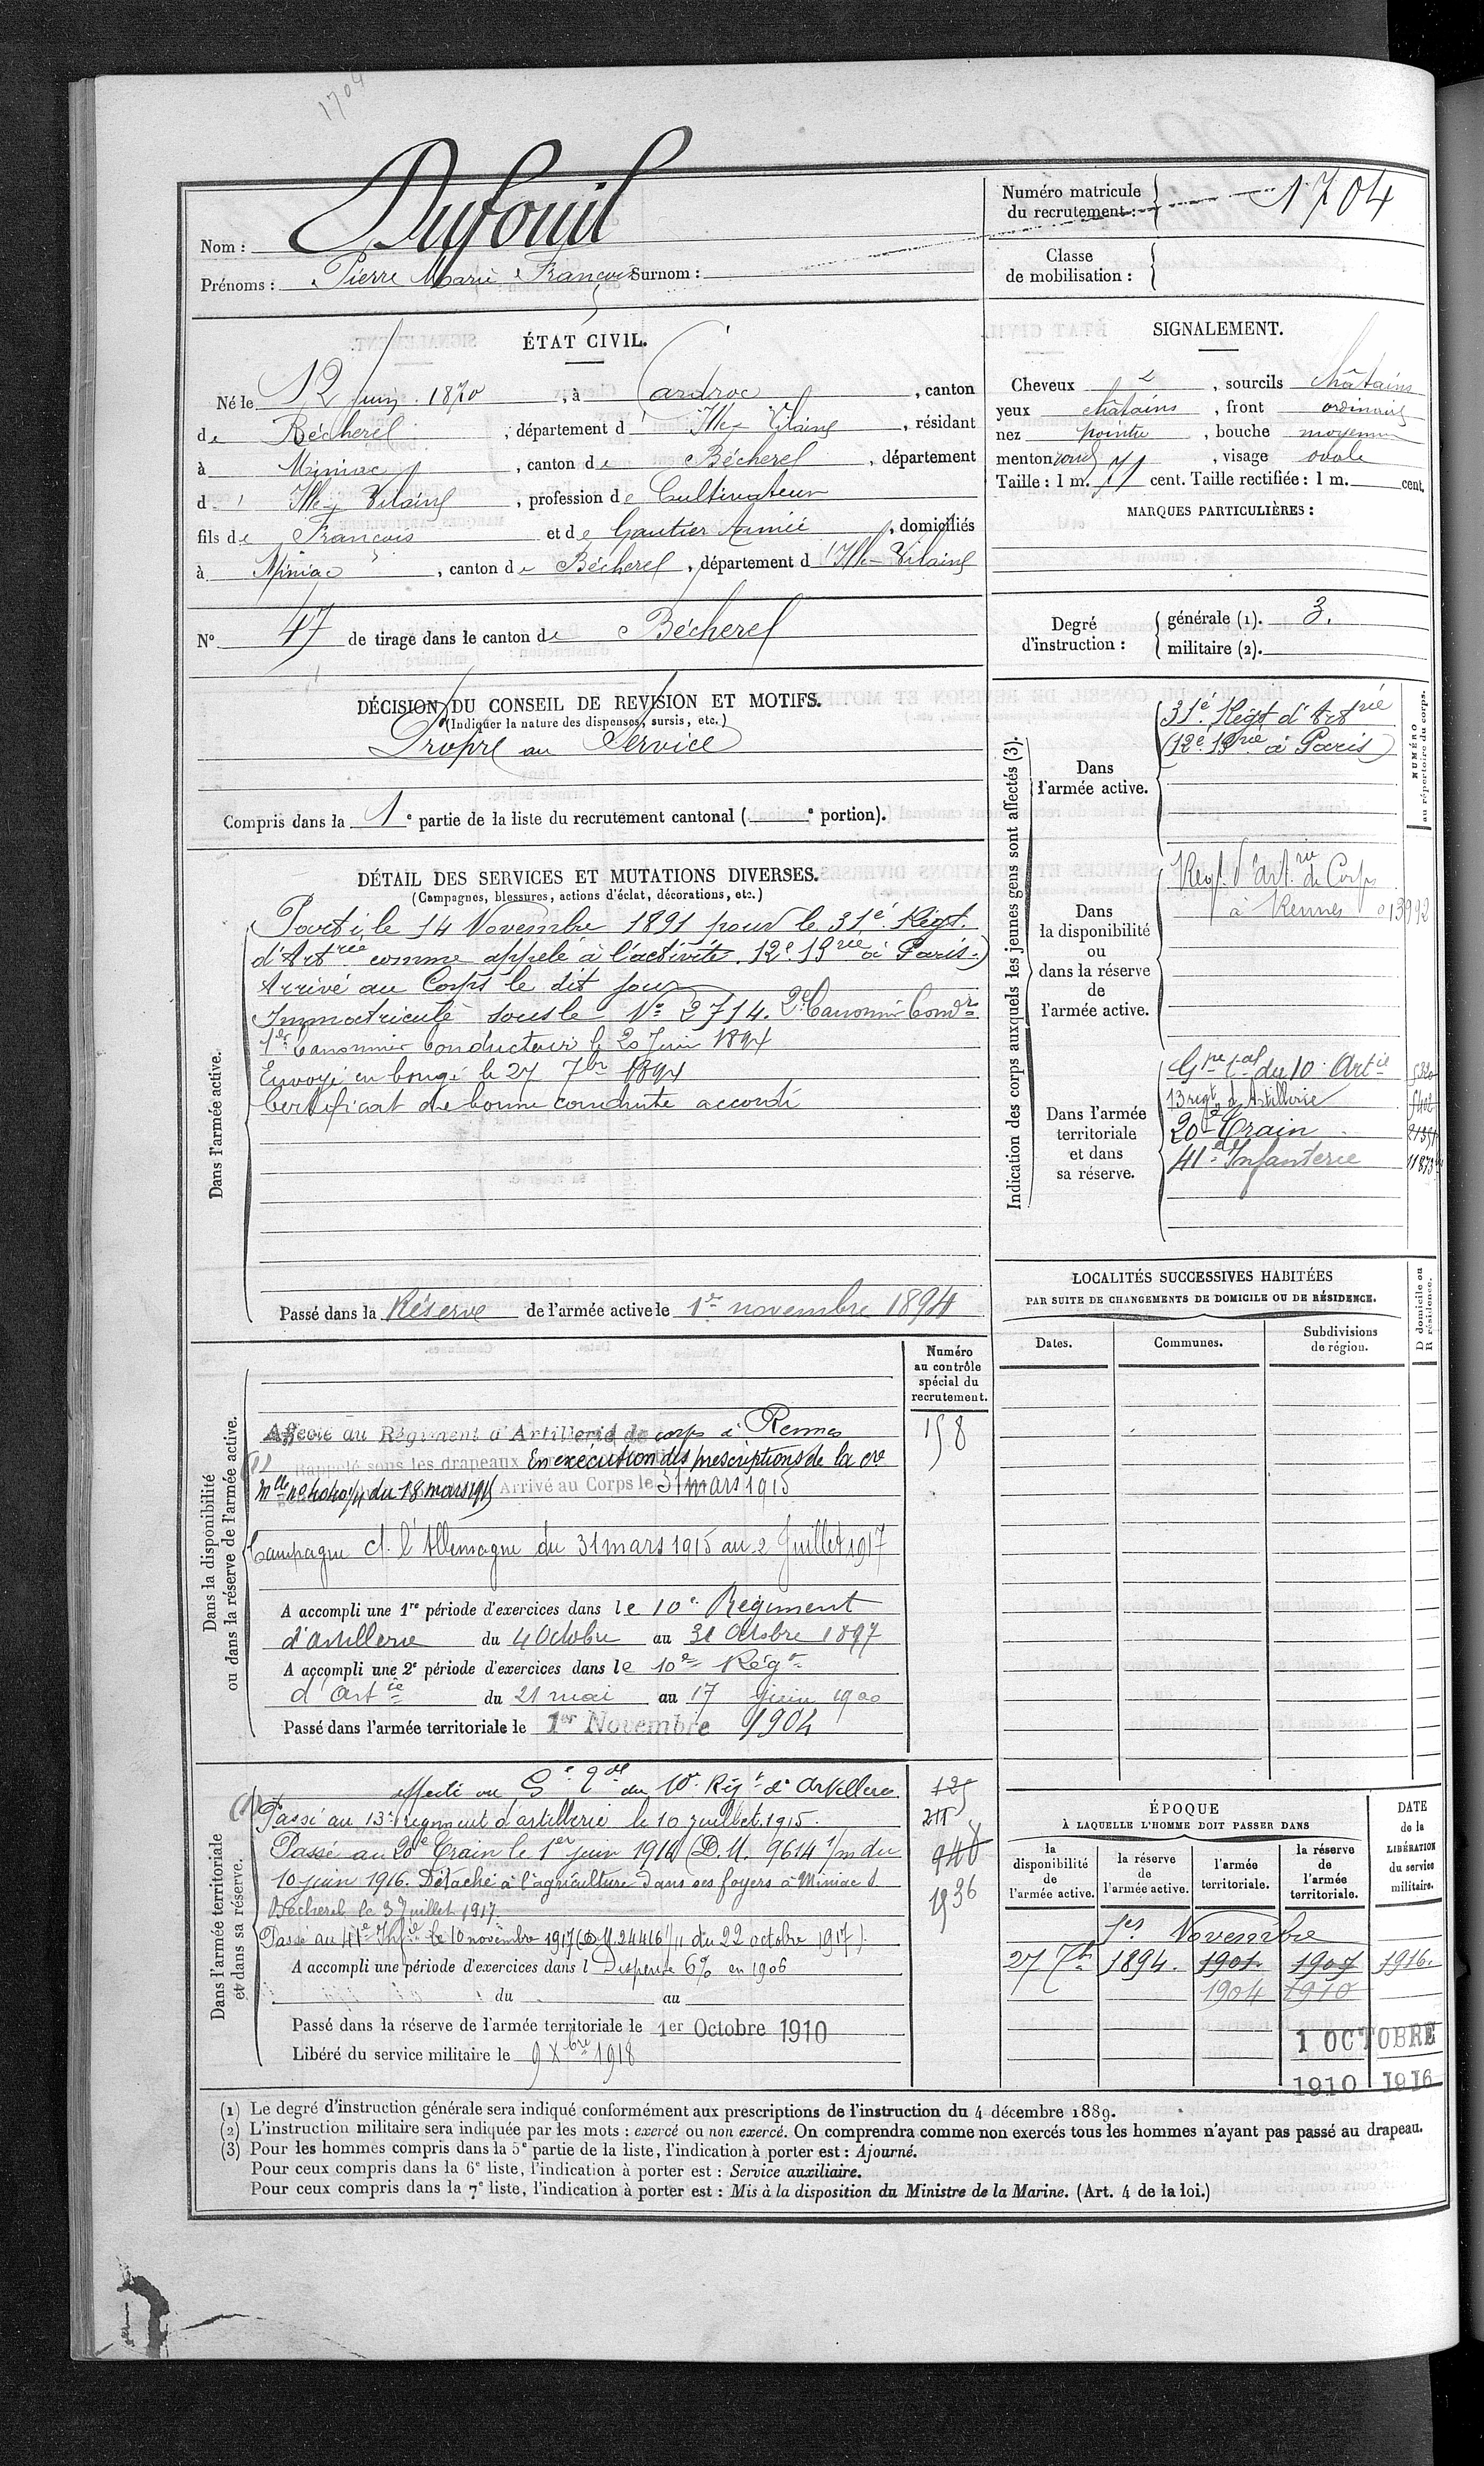 1704
Nom : Dufouil
Prénoms : Pierre Marie François Surnom :
Numéro matricule
du recrutement : 1704
Classe
de mobilisation :
ÉTAT CIVIL.
Né le 12 juin 1870, à Cardroc, canton
de Bécherel, département d'Ille-Vilaine, résidant
à Miniac, canton de Bécherel, département
d'Ille-Vilaine, profession de Cultivateur
fils de François et de Gautier Aimée, domiciliés
à Miniac, canton de Bécherel, département d'Ille-Vilaine
N° 47 de tirage dans le canton de Bécherel
SIGNALEMENT.
Cheveux , sourcils châtains
yeux châtains, front ordinaire
nez pointu, bouche moyenne
menton rond, visage ovale
Taille : 1 m. 71 cent. Taille rectifiée : 1 m. cent.
MARQUES PARTICULIÈRES :
Degré
d'instruction :
générale (1). 3.
militaire (2).
DÉCISION DU CONSEIL DE REVISION ET MOTIFS.
(Indiquer la nature des dispenses, sursis, etc.)
Propre au Service
Compris dans la 1e partie de la liste du recrutement cantonal ( e portion).
DÉTAIL DES SERVICES ET MUTATIONS DIVERSES.
(Campagnes, blessures, actions d'éclat, décorations, etc.)
Dans l'armée active.
Parti le 14 Novembre 1891 pour le 31e Régt.
d'Artrie comme appelé à l'activité. 12e Brie à Paris.)
Arrivé au Corps le dit jour
Immatriculé sous le N° 2714. 2e Canonnier Condr
1er Canonnier Conducteur le 20 Juin 1894
Envoyé en congé le 27 7bre 1894
Certificat de bonne conduite accordé
Passé dans la Réserve de l'armée active le 1er novembre 1894
Indication des corps auxquels les jeunes gens sont affectés (3).
NUMÉRO
au répertoire du corps.
Dans
l'armée active.
31e Régt d'Artrie
(12e Brie à Paris)
Dans
la disponibilité
ou
dans la réserve
de
l'armée active.
Regt. d'Art.rie de Corps
à Rennes 013992
Dans l'armée
territoriale
et dans
sa réserve.
Gpe tal du 10e Artie
13 regt d'Artillerie
20e Train
41e Infanterie
LOCALITÉS SUCCESSIVES HABITÉES
PAR SUITE DE CHANGEMENTS DE DOMICILE OU DE RÉSIDENCE.
Dates.
Communes.
Subdivisions
de région.
D domicile ou
R résidence.
Dans la disponibilité
ou dans la réserve de l'armée active.
Numéro
au contrôle
spécial du
recrutement.
Affecté au Régiment d'Artillerie de corps à Rennes 158
Rappelé sous les drapeaux En exécution des prescriptions de la cre
mlle n° 4040 1/11 du 18 mars 1915 Arrivé au Corps le 31 mars 1915
Campagne ct. l'Allemagne du 31 mars 1915 au 2 Juillet 1917
A accompli une 1re période d'exercices dans le 10e Régiment
d'artillerie du 4 Octobre au 31 Octobre 1897
A accompli une 2e période d'exercices dans le 10e Régt
d'Artie du 21 mai au 17 juin 1900
Passé dans l'armée territoriale le 1er Novembre 1904
Dans l'armée territoriale
et dans sa réserve.
affecté au Ge tal du 10e Régt d'Artillerie 125
Passé au 13e régiment d'artillerie le 10 juillet 1915. 215
Passé au 20e Train le 1er juin 1916 (D.M. 9614 1/m du 940
10 juin 1916. Détaché à l'agriculture dans ses foyers à Miniac s 1936
Bécherel le 3 Juillet 1917.
Passé au 41e Infie le 10 novembre 1917 (DM 24416 1/11 du 22 octobre 1917).
A accompli une période d'exercices dans l Dispensé 6% en 1906
du au
Passé dans la réserve de l'armée territoriale le 1er Octobre 1910
Libéré du service militaire le 9 Xbre 1918
ÉPOQUE
À LAQUELLE L'HOMME DOIT PASSER DANS
la
disponibilité
de
l'armée active.
la réserve
de
l'armée active.
l'armée
territoriale.
la réserve
de
l'armée
territoriale.
DATE
de la
LIBÉRATION
du service
militaire.
1er Novembre
27 7bre 1894. 1901 1907 1916.
1904 1910
1 OCTOBRE
1910 1916
(1) Le degré d'instruction générale sera indiqué conformément aux prescriptions de l'instruction du 4 décembre 1889.
(2) L'instruction militaire sera indiquée par les mots : exercé ou non exercé. On comprendra comme non exercés tous les hommes n'ayant pas passé au drapeau.
(3) Pour les hommes compris dans la 5e partie de la liste, l'indication à porter est : Ajourné.
Pour ceux compris dans la 6e liste, l'indication à porter est : Service auxiliaire.
Pour ceux compris dans la 7e liste, l'indication à porter est : Mis à la disposition du Ministre de la Marine. (Art. 4 de la loi.)